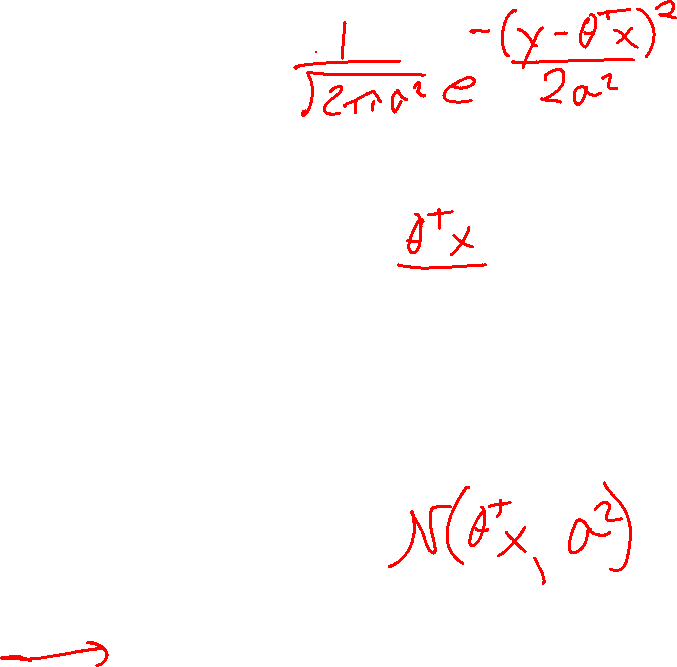 1/√(2πa²) e^(-(y - θᵀx)²/2a²)
θᵀx
N(θᵀx, a²)